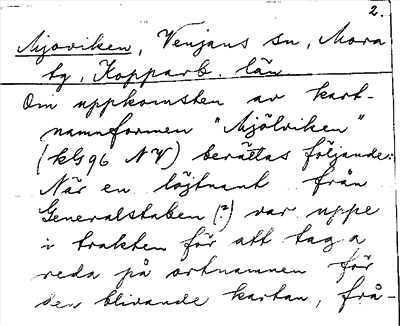 2.
Mjoviken, Venjans sn, Mora
tg, Kopparb. län
Om uppkomsten av kart-
namnformen "Mjölviken"
(kbG96 NV) berättas följande:
När en löjtnant från
Generalstaben (?) var uppe
i trakten för att taga
reda på ortnamnen för
den blivande kartan, frå-